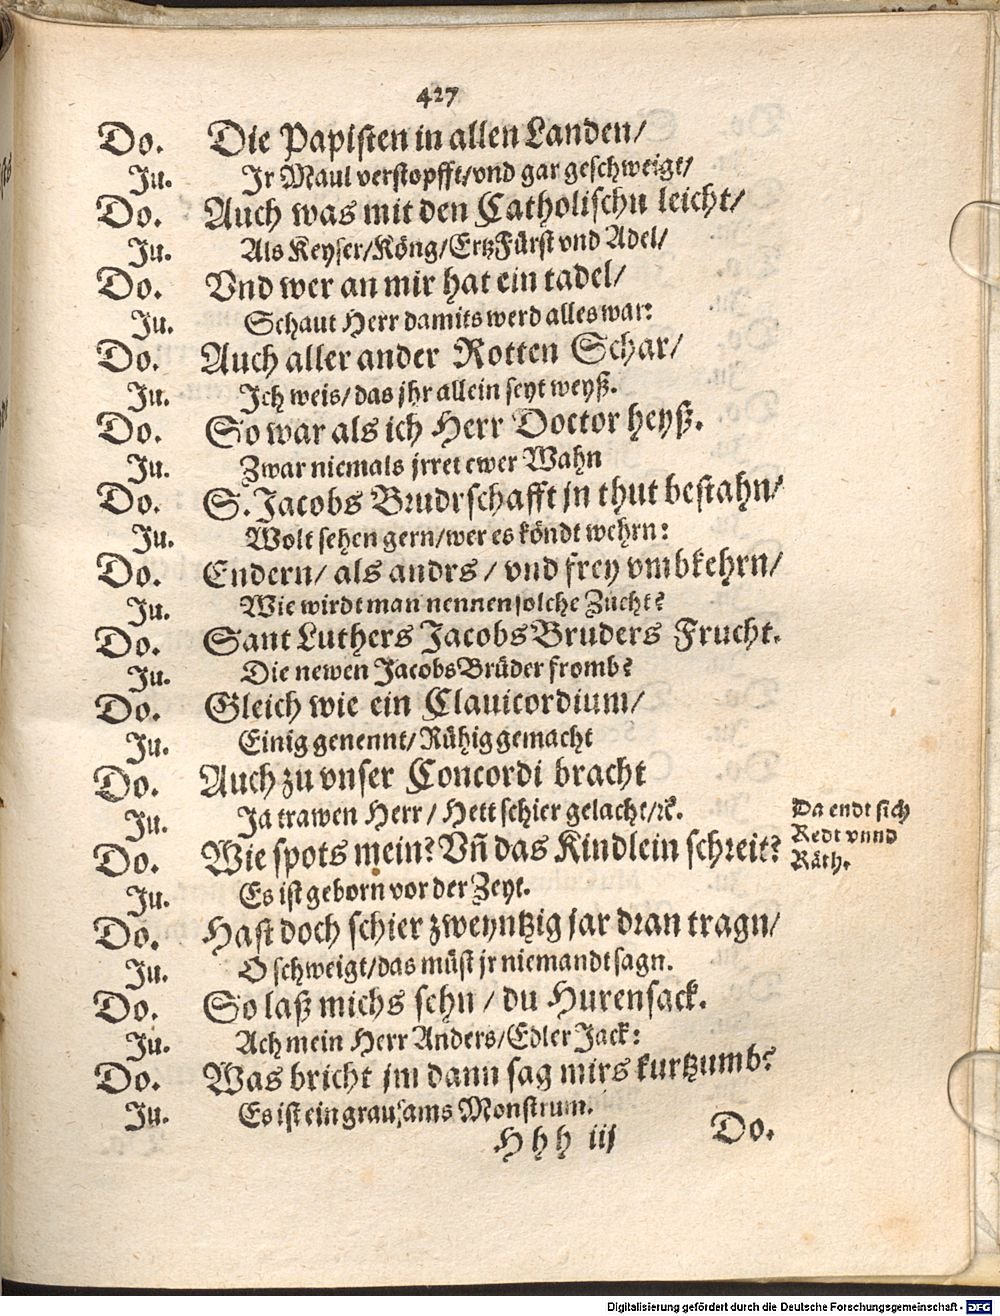 427
Do. Die Papisten in allen Landen/
Ju. Jr Maul verstopfft/vnd gar geschweigt/
Do. Auch was mit den Catholischn leicht/
Ju. Als Keyser/Köng/ErtzFürst vnd Adel/
Do. Vnd wer an mir hat ein tadel/
Ju. Schaut Herr damits werd alles war:
Do. Auch aller ander Rotten Schar/
Ju. Jch weis/das jhr allein seyt weyß.
Do. So war als ich Herr Doctor heyß.
Ju. Zwar niemals jrret ewer Wahn
Do. S. Jacobs Brudrschafft jn thut bestahn/
Ju. Wolt sehen gern/wer es köndt wehrn:
Do. Endern/ als andrs / vnd frey vmbkehrn/
Ju. Wie wirdt man nennen solche Zucht?
Do. Sant Luthers Jacobs Bruders Frucht.
Ju. Die newen JacobsBrüder fromb?
Do. Gleich wie ein Clauicordium/
Ju. Einig genennt/Rühig gemacht
Do. Auch zu vnser Concordi bracht
Ju. Ja trawen Herr/ Hett schier gelacht/ꝛc.
Do. Wie spots mein? Vñ das Kindlein schreit?
Da endt sich
Redt vnnd
Räth.
Ju. Es ist geborn vor der Zeyt.
Do. Hast doch schier zweyntzig jar dran tragn/
Ju. O schweigt/das müst jr niemandt sagn.
Do. So laß michs sehn / du Hurensack.
Ju. Ach mein Herr Anders/Edler Jack:
Do. Was bricht jm dann sag mirs kurtzumb?
Ju. Es ist ein grausams Monstrum.
H h h iij Do.
Digitalisierung gefördert durch die Deutsche Forschungsgemeinschaft - DFG